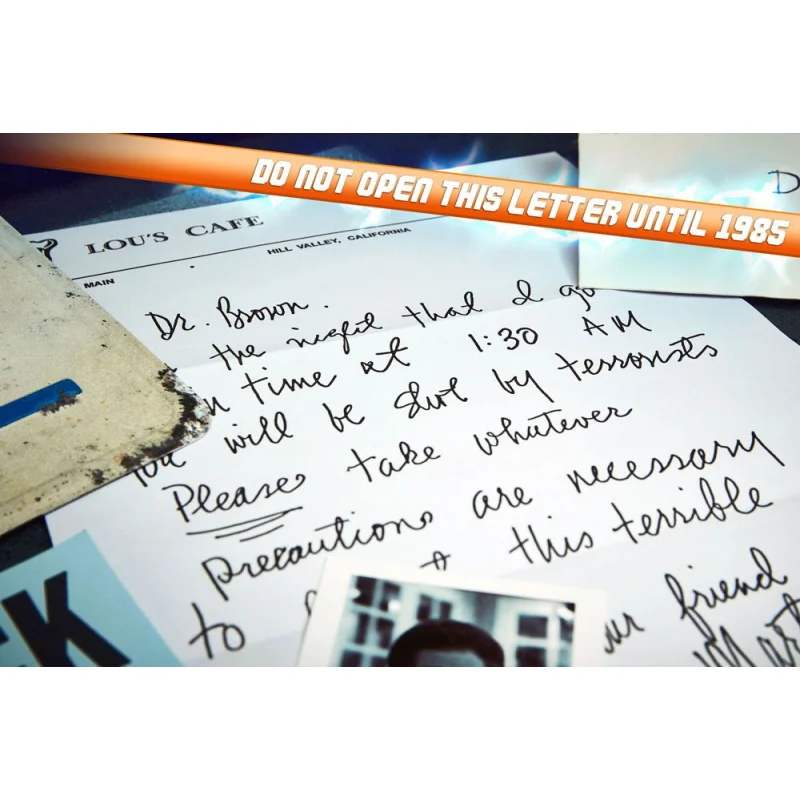 DO NOT OPEN THIS LETTER UNTIL 1985
D
LOU'S CAFE
HILL VALLEY, CALIFORNIA
MAIN
Dr. Brown.
the night that I go
time at 1:30 AM
will be shot by terrorists
Please take whatever
precautions are necessary
to this terrible
friend
EK